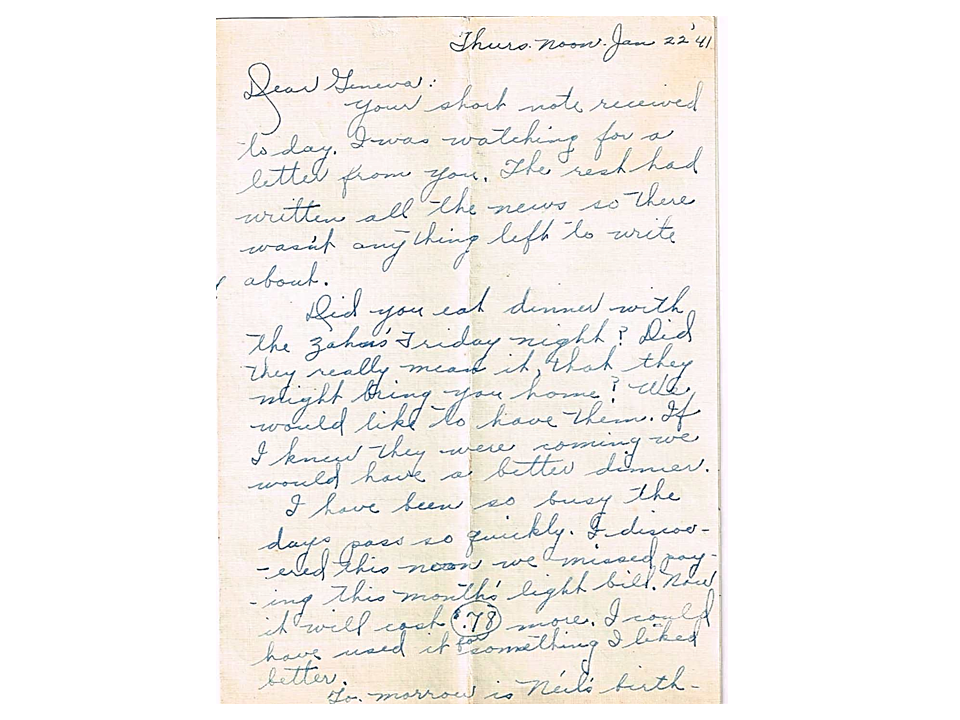 Thurs. noon. Jan 22 '41
Dear Geneva:
Your short note received
to day. I was watching for a
letter from you. The rest had
written all the news so there
wasn't any thing left to write
about.
Did you eat dinner with
the Zahn's Friday night? Did
they really mean it, that they
might bring you home? We
would like to have them. If
I knew they were coming we
would have a better dinner.
I have been so busy the
days pass so quickly. I discov-
-ered this noon we missed pay-
-ing this month's light bill. Now
it will cost $.78 more. I could
have used it for something I liked
better.
To. morrow is Neil's birth-